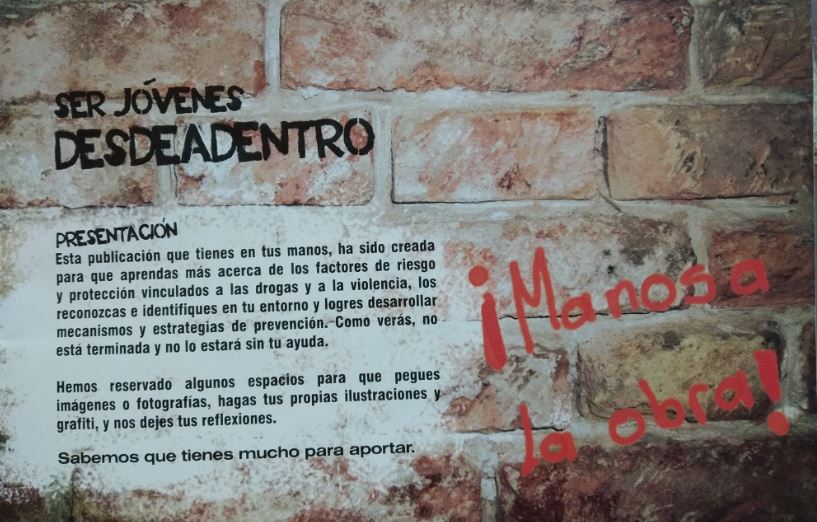 SER JÓVENES
DESDEADENTRO
PRESENTACIÓN
Esta publicación que tienes en tus manos, ha sido creada
para que aprendas más acerca de los factores de riesgo
y protección vinculados a las drogas y a la violencia, los
reconozcas e identifiques en tu entorno y logres desarrollar
mecanismos y estrategias de prevención. Como verás, no
está terminada y no lo estará sin tu ayuda.
Hemos reservado algunos espacios para que pegues
imágenes o fotografías, hagas tus propias ilustraciones y
grafiti, y nos dejes tus reflexiones.
Sabemos que tienes mucho para aportar.
¡Manos a
la obra!